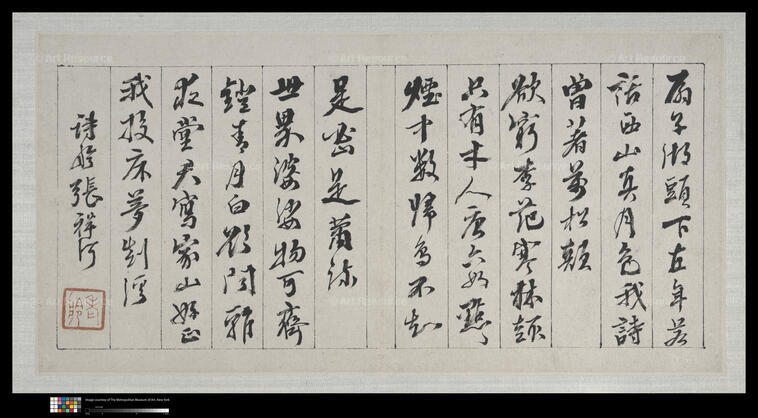 扇子湖頭下直年茗
話西山真月色我詩
曾署萬松
欲窮李范寒林韻
只有才人唐六如點々
煙中數歸鳥不知
是密是蕭疏
世界婆娑物可齊
鐙青月白欲聞雞
堂君寫家山好正
我投床夢剡溪
詩舲張祥河
Art Resource
Image courtesy of The Metropolitan Museum of Art, New York